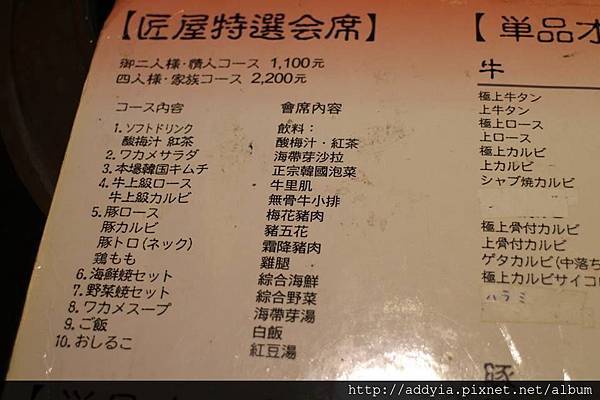 【匠屋特選会席】
御二人様・情人コース 1,100元
四人様・家族コース 2,200元
コース内容
1.ソフトドリンク
酸梅汁 紅茶
2.ワカメサラダ
3.本場韓国キムチ
4.牛上級ロース
牛上級カルビ
5.豚ロース
豚カルビ
豚トロ(ネック)
鶏もも
6.海鮮焼セット
7.野菜焼セット
8.ワカメスープ
9.ご飯
10.おしるこ
會席內容
飲料：
酸梅汁・紅茶
海帶芽沙拉
正宗韓國泡菜
牛里肌
無骨牛小排
梅花豬肉
豬五花
霜降豬肉
雞腿
綜合海鮮
綜合野菜
海帶芽湯
白飯
紅豆湯
【単品オ
牛
極上牛タン
上牛タン
極上ロース
上ロース
極上カルビ
上カルビ
シャブ焼カルビ
極上骨付カルビ
上骨付カルビ
ゲタカルビ(中落ち
極上カルビサイコロ
ハラミ
豚
http://addyia.pixnet.net/album